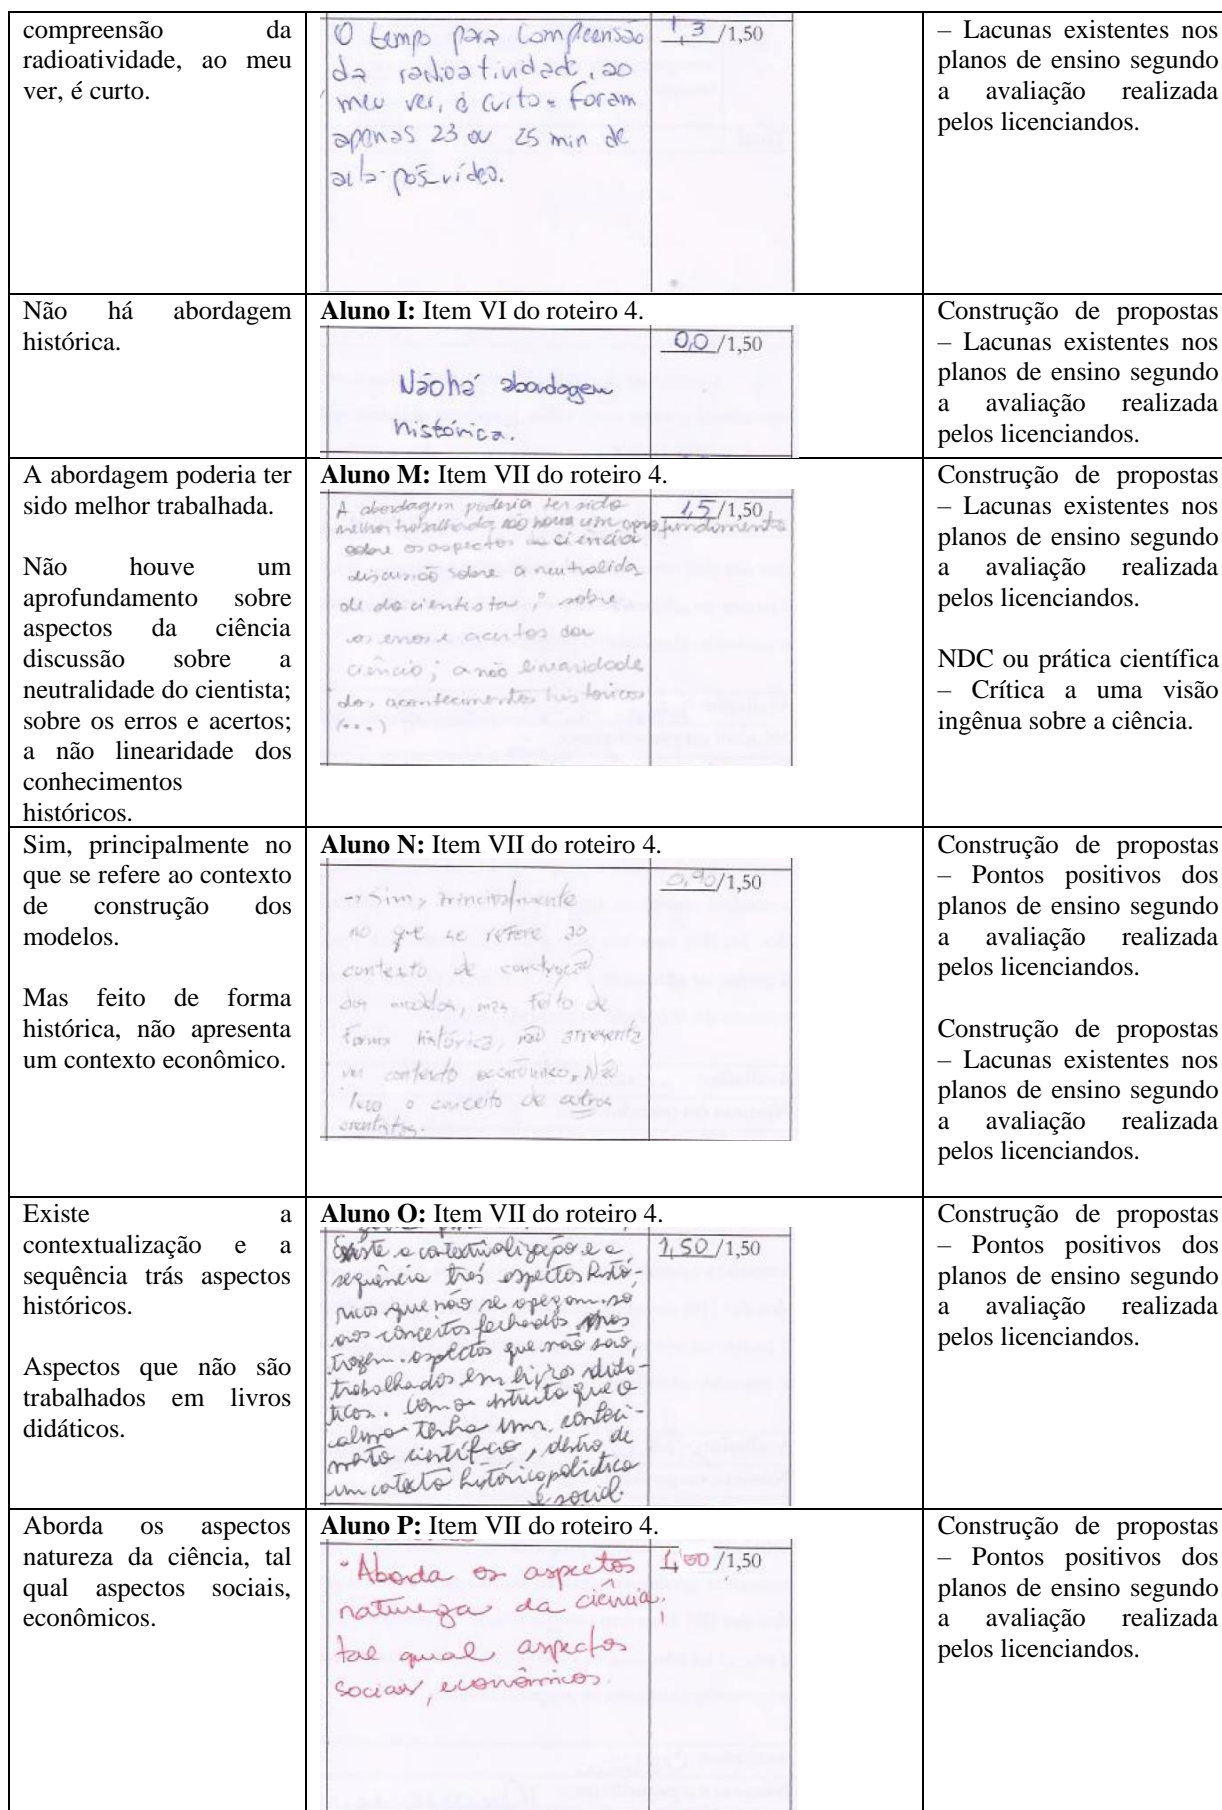 compreensão da
radioatividade, ao meu
ver, é curto.
O tempo para compreensão
da radioatividade, ao
meu ver, é curto. Foram
apenas 23 ou 25 min de
aula pós-vídeo.
1,3/1,50
– Lacunas existentes nos
planos de ensino segundo
a avaliação realizada
pelos licenciandos.
Não há abordagem
histórica.
Aluno I: Item VI do roteiro 4.
0,0/1,50
Não há abordagem
histórica.
Construção de propostas
– Lacunas existentes nos
planos de ensino segundo
a avaliação realizada
pelos licenciandos.
A abordagem poderia ter
sido melhor trabalhada.
Não houve um
aprofundamento sobre
aspectos da ciência
discussão sobre a
neutralidade do cientista;
sobre os erros e acertos;
a não linearidade dos
conhecimentos
históricos.
Aluno M: Item VII do roteiro 4.
A abordagem poderia ter sido
melhor trabalhada, não houve um aprofundamento
sobre os aspectos da ciência
discussão sobre a neutralida
de do cientista; sobre
os erros e acertos da
ciência; a não linearidade
dos acontecimentos históricos
(...)
1,5/1,50
Construção de propostas
– Lacunas existentes nos
planos de ensino segundo
a avaliação realizada
pelos licenciandos.
NDC ou prática científica
– Crítica a uma visão
ingênua sobre a ciência.
Sim, principalmente no
que se refere ao contexto
de construção dos
modelos.
Mas feito de forma
histórica, não apresenta
um contexto econômico.
Aluno N: Item VII do roteiro 4.
→ Sim, principalmente
no que se refere ao
contexto de construção
dos modelos, mas feito de
forma histórica, não apresenta
um contexto econômico, Não
o conceito de outros
cientistas.
0,90/1,50
Construção de propostas
– Pontos positivos dos
planos de ensino segundo
a avaliação realizada
pelos licenciandos.
Construção de propostas
– Lacunas existentes nos
planos de ensino segundo
a avaliação realizada
pelos licenciandos.
Existe a
contextualização e a
sequência trás aspectos
históricos.
Aspectos que não são
trabalhados em livros
didáticos.
Aluno O: Item VII do roteiro 4.
Existe a contextualização e a
sequência trás aspectos histó-
ricos que não se apegam so
aos conceitos fechados mas
trazem aspectos que não são
trabalhados em livros didá-
ticos. Com o intuito que o
aluno tenha um conheci-
mento científico, dentro de
um contexto histórico político
e social.
1,50/1,50
Construção de propostas
– Pontos positivos dos
planos de ensino segundo
a avaliação realizada
pelos licenciandos.
Aborda os aspectos
natureza da ciência, tal
qual aspectos sociais,
econômicos.
Aluno P: Item VII do roteiro 4.
Aborda os aspectos
natureza da ciência,
tal qual aspectos
sociais, econômicos.
1,00/1,50
Construção de propostas
– Pontos positivos dos
planos de ensino segundo
a avaliação realizada
pelos licenciandos.